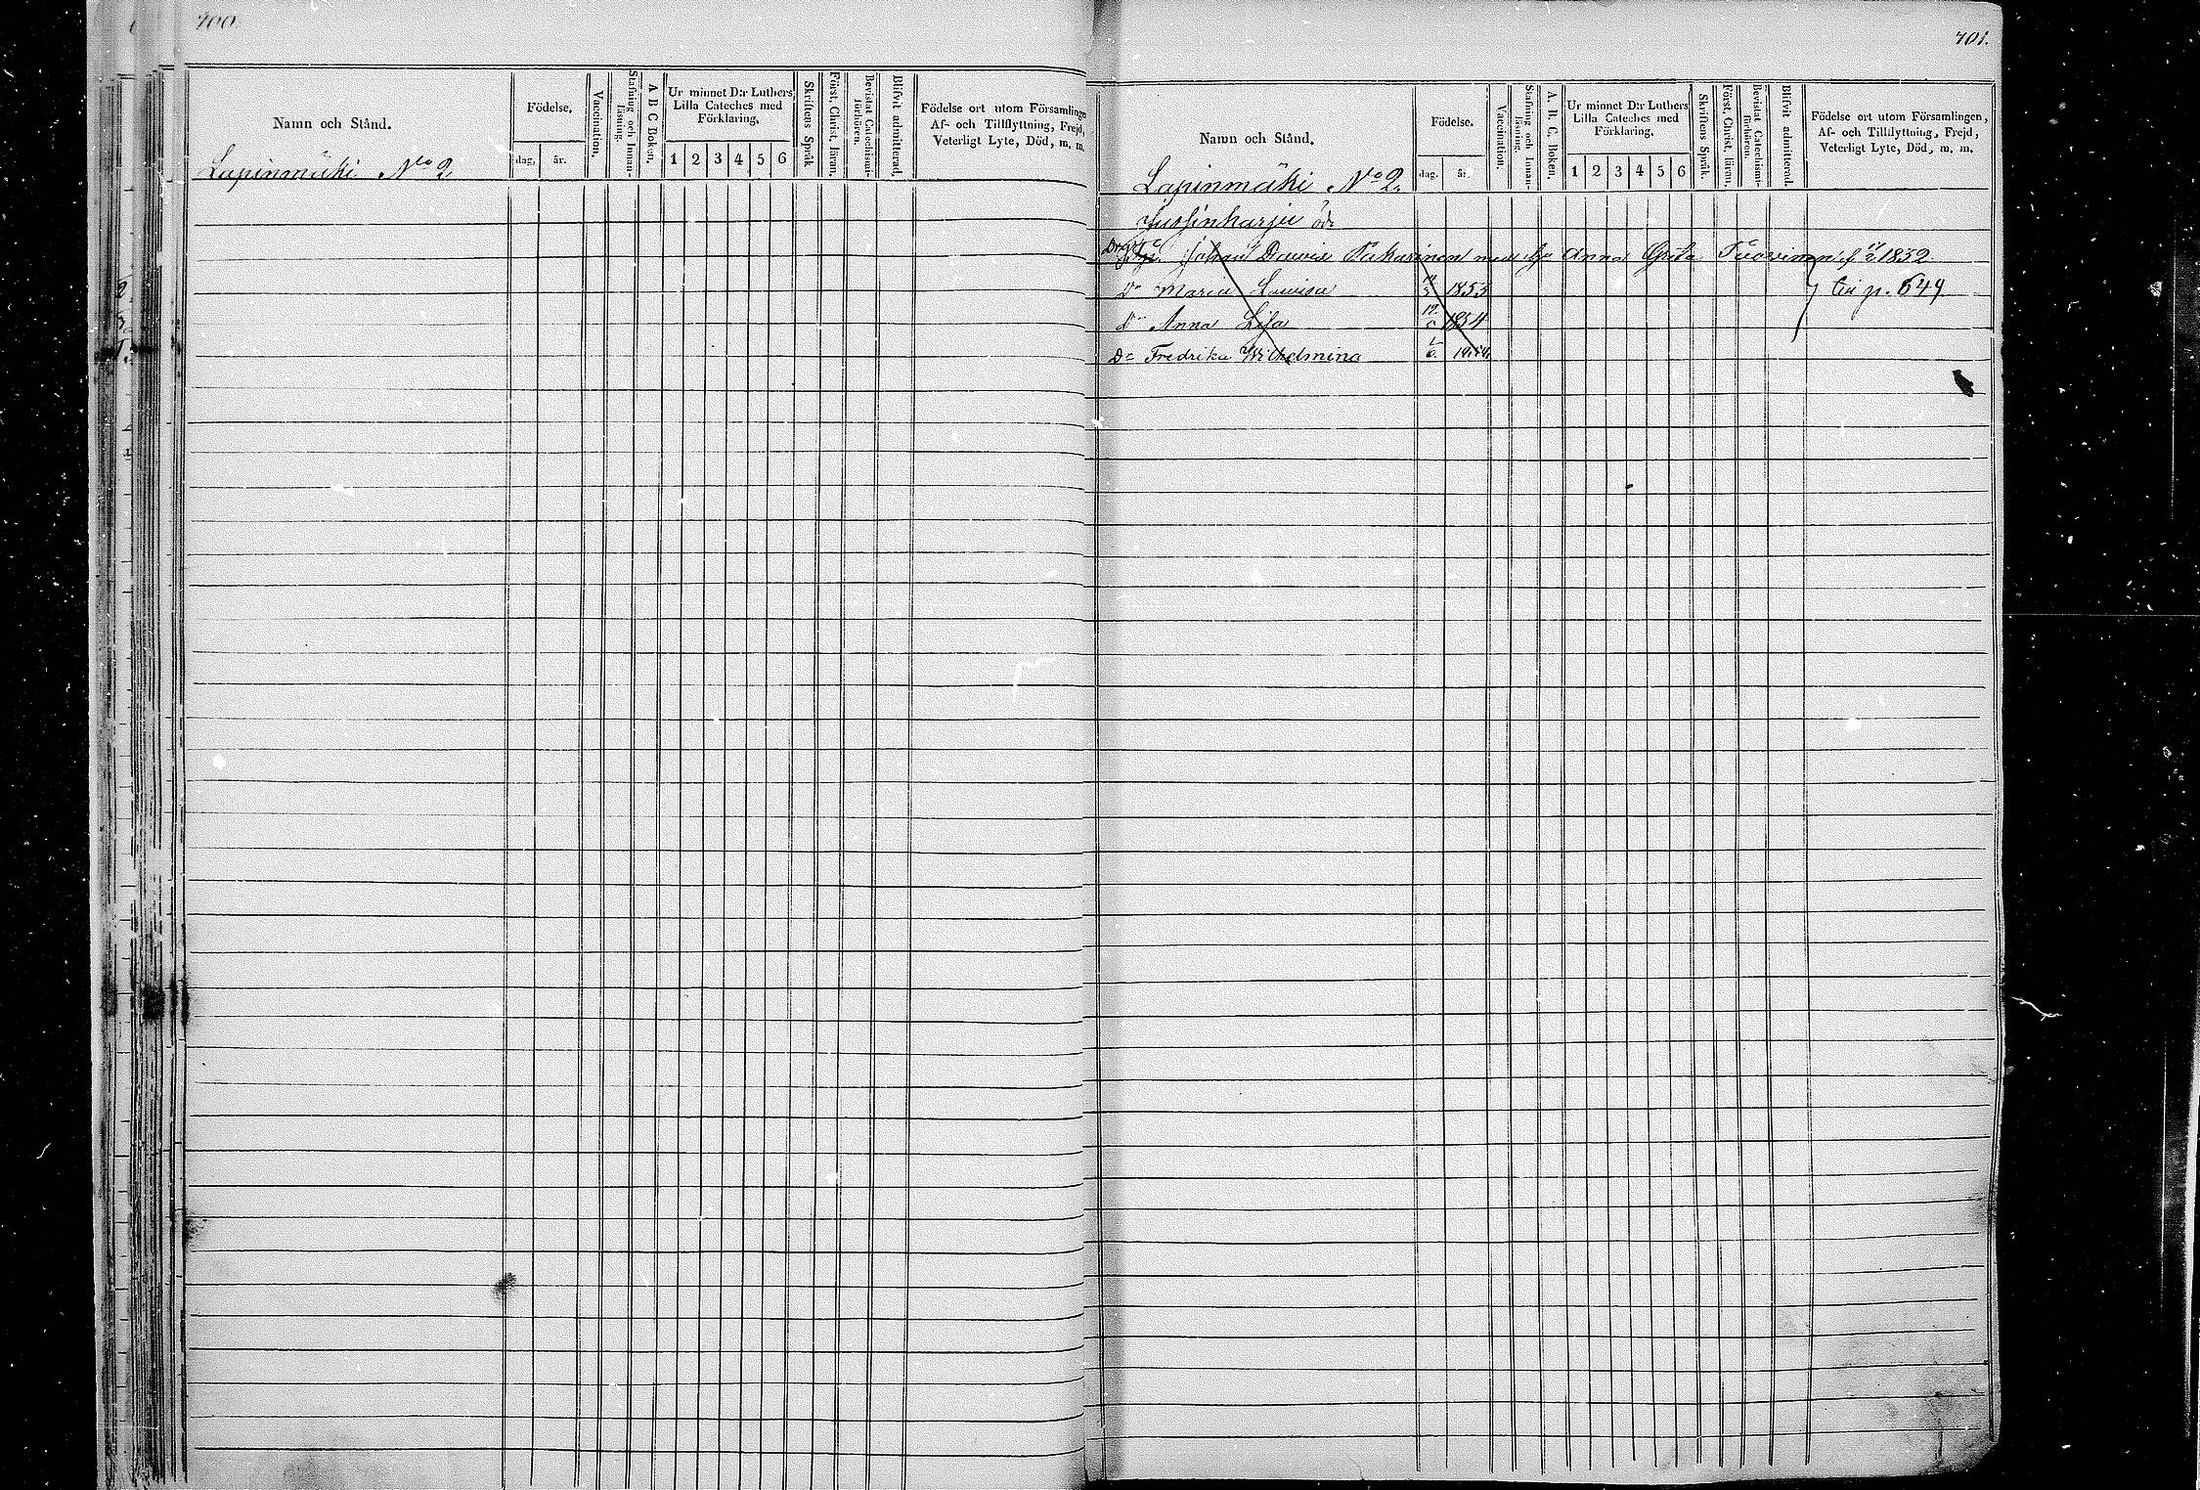 700.
Namn och Stånd.
Födelse.
dag.
år.
Vaccination.
Stafning och Innan-
läsning.
A B C Boken.
Ur minnet D:r Luthers
Lilla Cateches med
Förklaring.
1 2 3 4 5 6
Skriftens Språk
Först. Christ. läran.
Bevistat Catechismi-
förhören.
Blifvit admitterad.
Födelse ort utom Församlingen
Af- och Tillflyttning, Frejd,
Veterligt Lyte, Död, m. m.
Lapinmäki No 2
701.
Namn och Stånd.
Födelse.
dag.
år.
Vaccination.
Stafning och Innan-
läsning.
A. B. C. Boken.
Ur minnet D:r Luthers
Lilla Cateches med
Förklaring.
1 2 3 4 5 6
Skriftens Språk.
Först. Christ. läran.
Bevistat Catechismi-
förhören.
Blifvit admitterad.
Födelse ort utom Församlingen,
Af- och Tillflyttning, Frejd,
Veterligt Lyte, Död, m. m.
Lapinmäki No 2.
Jussinharju öde
Johan Pakarinen med Anna Greta Tuovinen 1832
Dr Maria Lovisa 1853 p. 649
Dr Anna Lisa 1854
Dr Fredrika Wilhelmina